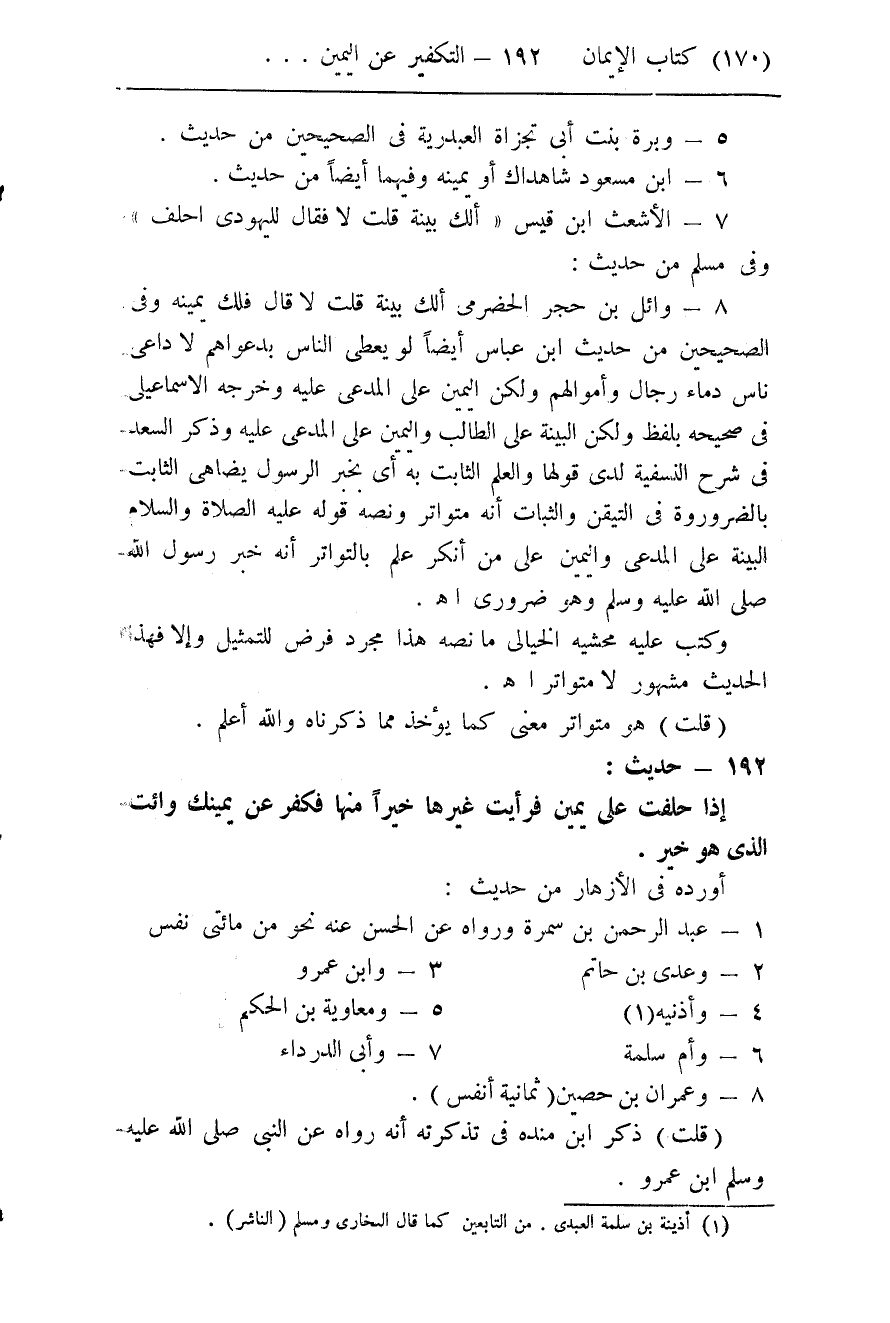 (١٧٠) كتاب الإيمان ١٩٢ – التكفير عن اليمين . . .
٥ – وبرة بنت أبى تجزاة العبدرية فى الصحيحين من حديث .
٦ – ابن مسعود شاهداك أو يمينه وفيهما أيضاً من حديث .
٧ – الأشعث ابن قيس « ألك بينة قلت لا فقال لليهودى احلف »
وفى مسلم من حديث :
٨ – وائل بن حجر الحضرمى ألك بينة قلت لا قال فلك يمينه وفى
الصحيحين من حديث ابن عباس أيضاً لو يعطى الناس بدعواهم لا داعى
ناس دماء رجال وأموالهم ولكن اليمين على المدعى عليه وخرجه الاسماعيلى
فى صحيحه بلفظ ولكن البينة على الطالب واليمين على المدعى عليه وذكر السعد
فى شرح النسفية لدى قولها والعلم الثابت به أى بخبر الرسول يضاهى الثابت
بالضروروة فى التيقن والثبات أنه متواتر ونصه قوله عليه الصلاة والسلام
البينة على المدعى واليمين على من أنكر علم بالتواتر أنه خبر رسول الله
صلى الله عليه وسلم وهو ضرورى ا ه .
وكتب عليه محشيه الخيالى ما نصه هذا مجرد فرض للتمثيل وإلا فهذا
الحديث مشهور لا متواتر ا ه .
( قلت ) هو متواتر معنى كما يؤخذ مما ذكرناه والله أعلم .
١٩٢ – حديث :
إذا حلفت على يمين فرأيت غيرها خيراً منها فكفر عن يمينك وائت
الذى هو خير .
أورده فى الأزهار من حديث :
١ – عبد الرحمن بن سمرة ورواه عن الحسن عنه نحو من مائتى نفس
٢ – وعدى بن حاتم ٣ – وابن عمرو
٤ – وأذنيه(١) ٥ – ومعاوية بن الحكم
٦ – وأم سلمة ٧ – وأبى الدرداء
٨ – وعمران بن حصين( ثمانية أنفس ) .
( قلت ) ذكر ابن منده فى تذكرته أنه رواه عن النبى صلى الله عليه
وسلم ابن عمرو .
(١) أذينة بن سلمة العبدى . من التابعين كما قال البخارى ومسلم ( الناشر ) .